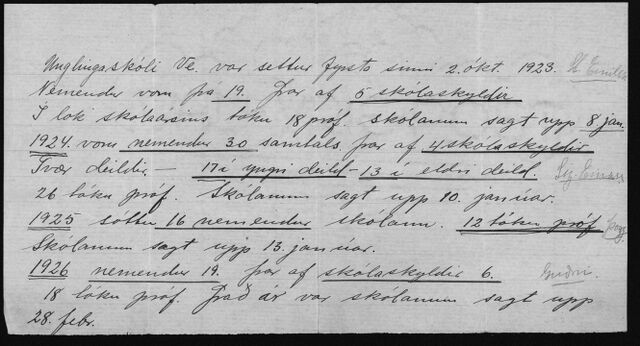 Unglingaskóli Ve. var settur fyrsta sinni 2. okt. 1923.
Nemendur voru þá 19. Þar af 5 skólaskyldir
Í lok skólaársins tóku 18 próf. Skólanum sagt upp 8 jan.
1924. voru nemendur 30 samtals þar af 4 skólaskyldir
Tvær deildir — 17 í yngri deild – 13 í eldri deild.
26 tóku próf. Skólanum sagt upp 10. janúar.
1925 sóttu 16 nemendur skólann. 12 tóku próf.
Skólanum sagt upp 13. janúar.
1926 nemendur 19. þar af skólaskyldir 6.
18 tóku próf. Það ár var skólanum sagt upp
28. febr.